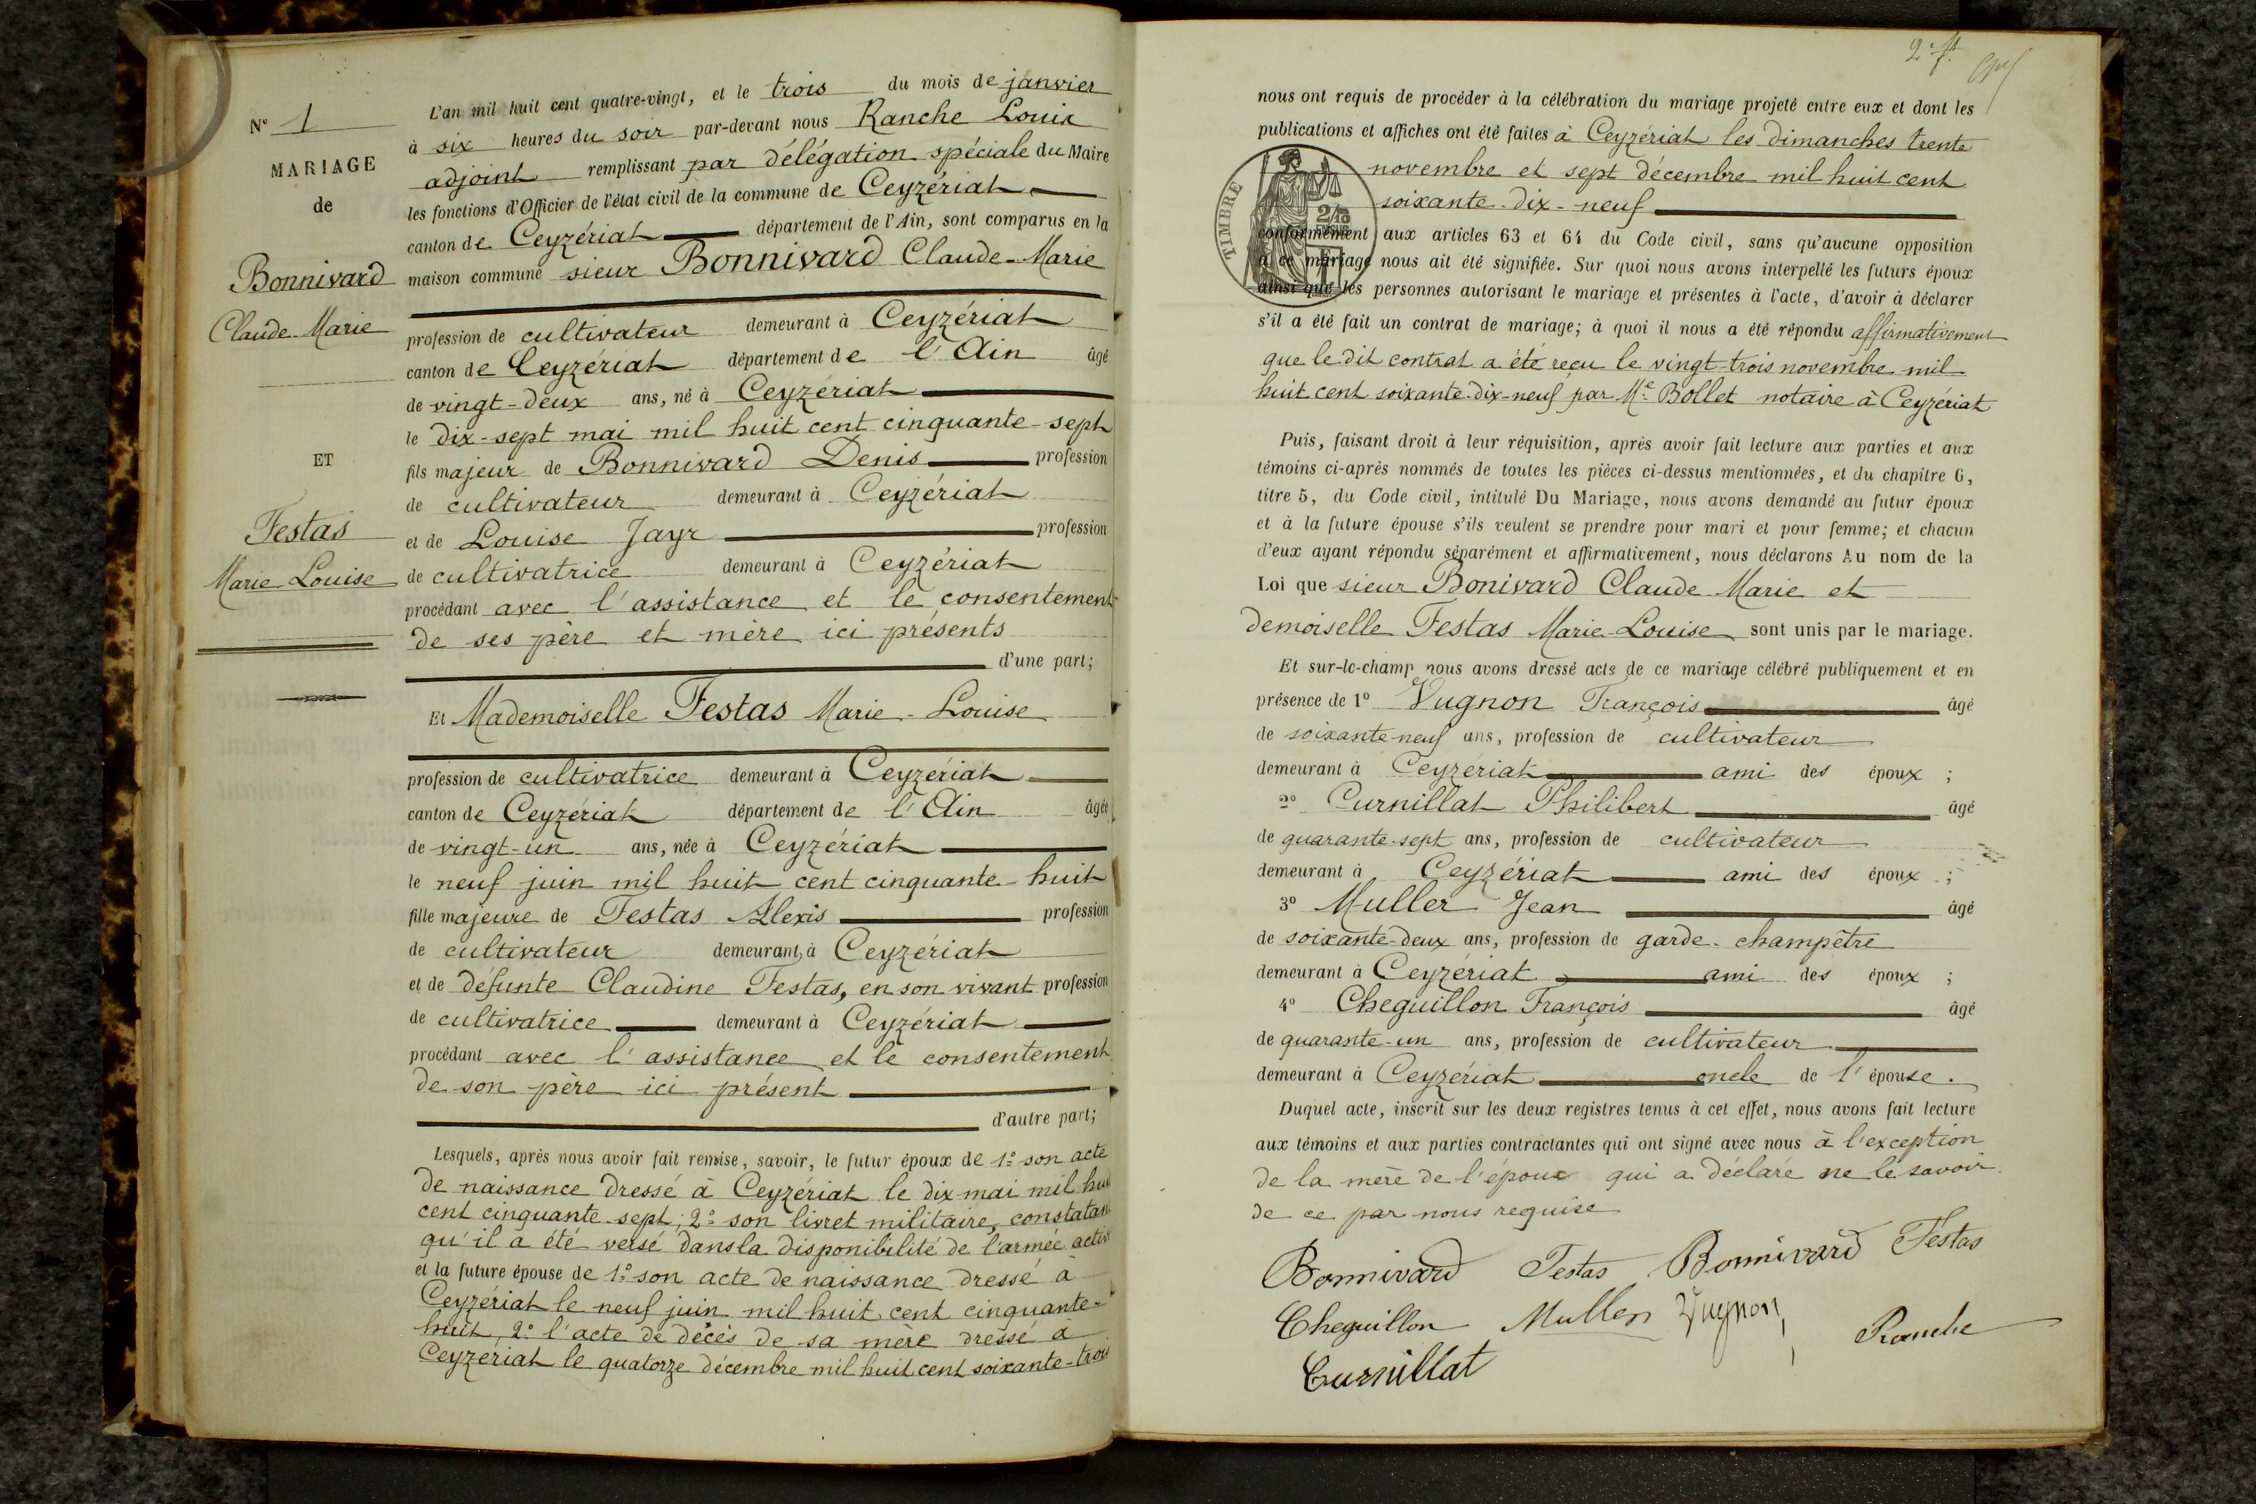 N° 1
MARIAGE
de
Bonnivard
Claude-Marie
ET
Festas
Marie-Louise
L'an mil huit cent quatre-vingt, et le trois du mois de janvier
à six heures du soir par-devant nous Ranche Louis
adjoint remplissant par délégation spéciale du Maire
les fonctions d'Officier de l'état civil de la commune de Ceyzériat
canton de Ceyzériat département de l'Ain, sont comparus en la
maison commune sieur Bonnivard Claude-Marie
profession de cultivateur demeurant à Ceyzériat
canton de Ceyzériat département de l'Ain âgé
de vingt-deux ans, né à Ceyzériat
le dix-sept mai mil huit cent cinquante-sept
fils majeur de Bonnivard Denis profession
de cultivateur demeurant à Ceyzériat
et de Louise Jayr profession
de cultivatrice demeurant à Ceyzériat
procédant avec l'assistance et le consentement
de ses père et mère ici présents
d'une part;
Et Mademoiselle Festas Marie-Louise
profession de cultivatrice demeurant à Ceyzériat
canton de Ceyzériat département de l'Ain âgée
de vingt-un ans, née à Ceyzériat
le neuf juin mil huit cent cinquante-huit
fille majeure de Festas Alexis profession
de cultivateur demeurant à Ceyzériat
et de défunte Claudine Festas, en son vivant profession
de cultivatrice demeurant à Ceyzériat
procédant avec l'assistance et le consentement
de son père ici présent
d'autre part;
Lesquels, après nous avoir fait remise, savoir, le futur époux de 1° son acte
de naissance dressé à Ceyzériat le dix mai mil hui
cent cinquante-sept; 2° son livret militaire, constatan
qu'il a été versé dans la disponibilité de l'armée activ
et la future épouse de 1° son acte de naissance dressé à
Ceyzériat le neuf juin mil huit cent cinquante-
huit, 2° l'acte de décès de sa mère dressé à
Ceyzériat le quatorze décembre mil huit cent soixante-trois
2e ft
nous ont requis de procéder à la célébration du mariage projeté entre eux et dont les
publications et affiches ont été faites à Ceyzériat les dimanches trente
novembre et sept décembre mil huit cent
soixante-dix-neuf
TIMBRE
2/10
conformément aux articles 63 et 64 du Code civil, sans qu'aucune opposition
à ce mariage nous ait été signifiée. Sur quoi nous avons interpellé les futurs époux
ainsi que les personnes autorisant le mariage et présentes à l'acte, d'avoir à déclarer
s'il a été fait un contrat de mariage; à quoi il nous a été répondu affirmativement
que le dit contrat a été reçu le vingt-trois novembre mil
huit cent soixante-dix-neuf par Me Bollet notaire à Ceyzériat
Puis, faisant droit à leur réquisition, après avoir fait lecture aux parties et aux
témoins ci-après nommés de toutes les pièces ci-dessus mentionnées, et du chapitre 6,
titre 5, du Code civil, intitulé Du Mariage, nous avons demandé au futur époux
et à la future épouse s'ils veulent se prendre pour mari et pour femme; et chacun
d'eux ayant répondu séparément et affirmativement, nous déclarons Au nom de la
Loi que sieur Bonivard Claude Marie et
demoiselle Festas Marie-Louise sont unis par le mariage.
Et sur-le-champ nous avons dressé acte de ce mariage célébré publiquement et en
présence de 1° Vugnon François âgé
de soixante-neuf ans, profession de cultivateur
demeurant à Ceyzeriat ami des époux ;
2° Curnillat Philibert âgé
de quarante-sept ans, profession de cultivateur
demeurant à Ceyzériat ami des époux ;
3° Muller Jean âgé
de soixante-deux ans, profession de garde-champêtre
demeurant à Ceyzériat ami des époux ;
4° Cheguillon François âgé
de quarante-un ans, profession de cultivateur
demeurant à Ceyzériat oncle de l'épouse.
Duquel acte, inscrit sur les deux registres tenus à cet effet, nous avons fait lecture
aux témoins et aux parties contractantes qui ont signé avec nous à l'exception
de la mère de l'époux qui a déclaré ne le savoir
de ce par nous requise
Bonnivard Festas Bonnivard Festas
Cheguillon Muller Vugnon Ranche
Curnillat